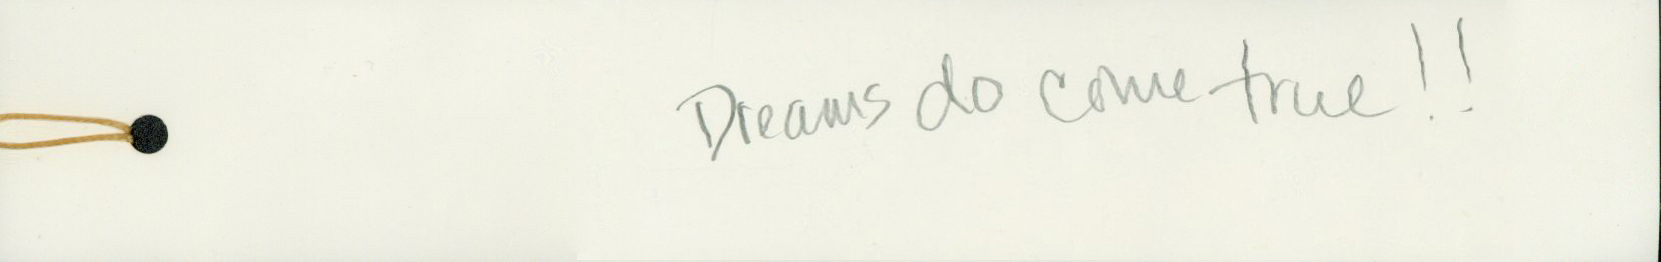 Dreams do come true!!